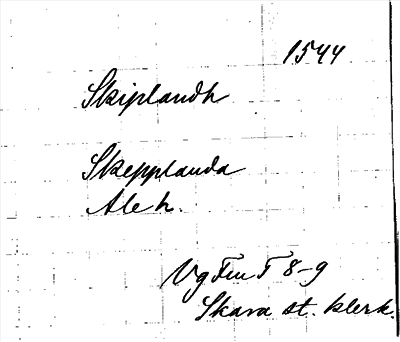 1544
Skiplandh
Skepplanda
Ale h.
Vg Fm T 8-9
Skara st. klerk.